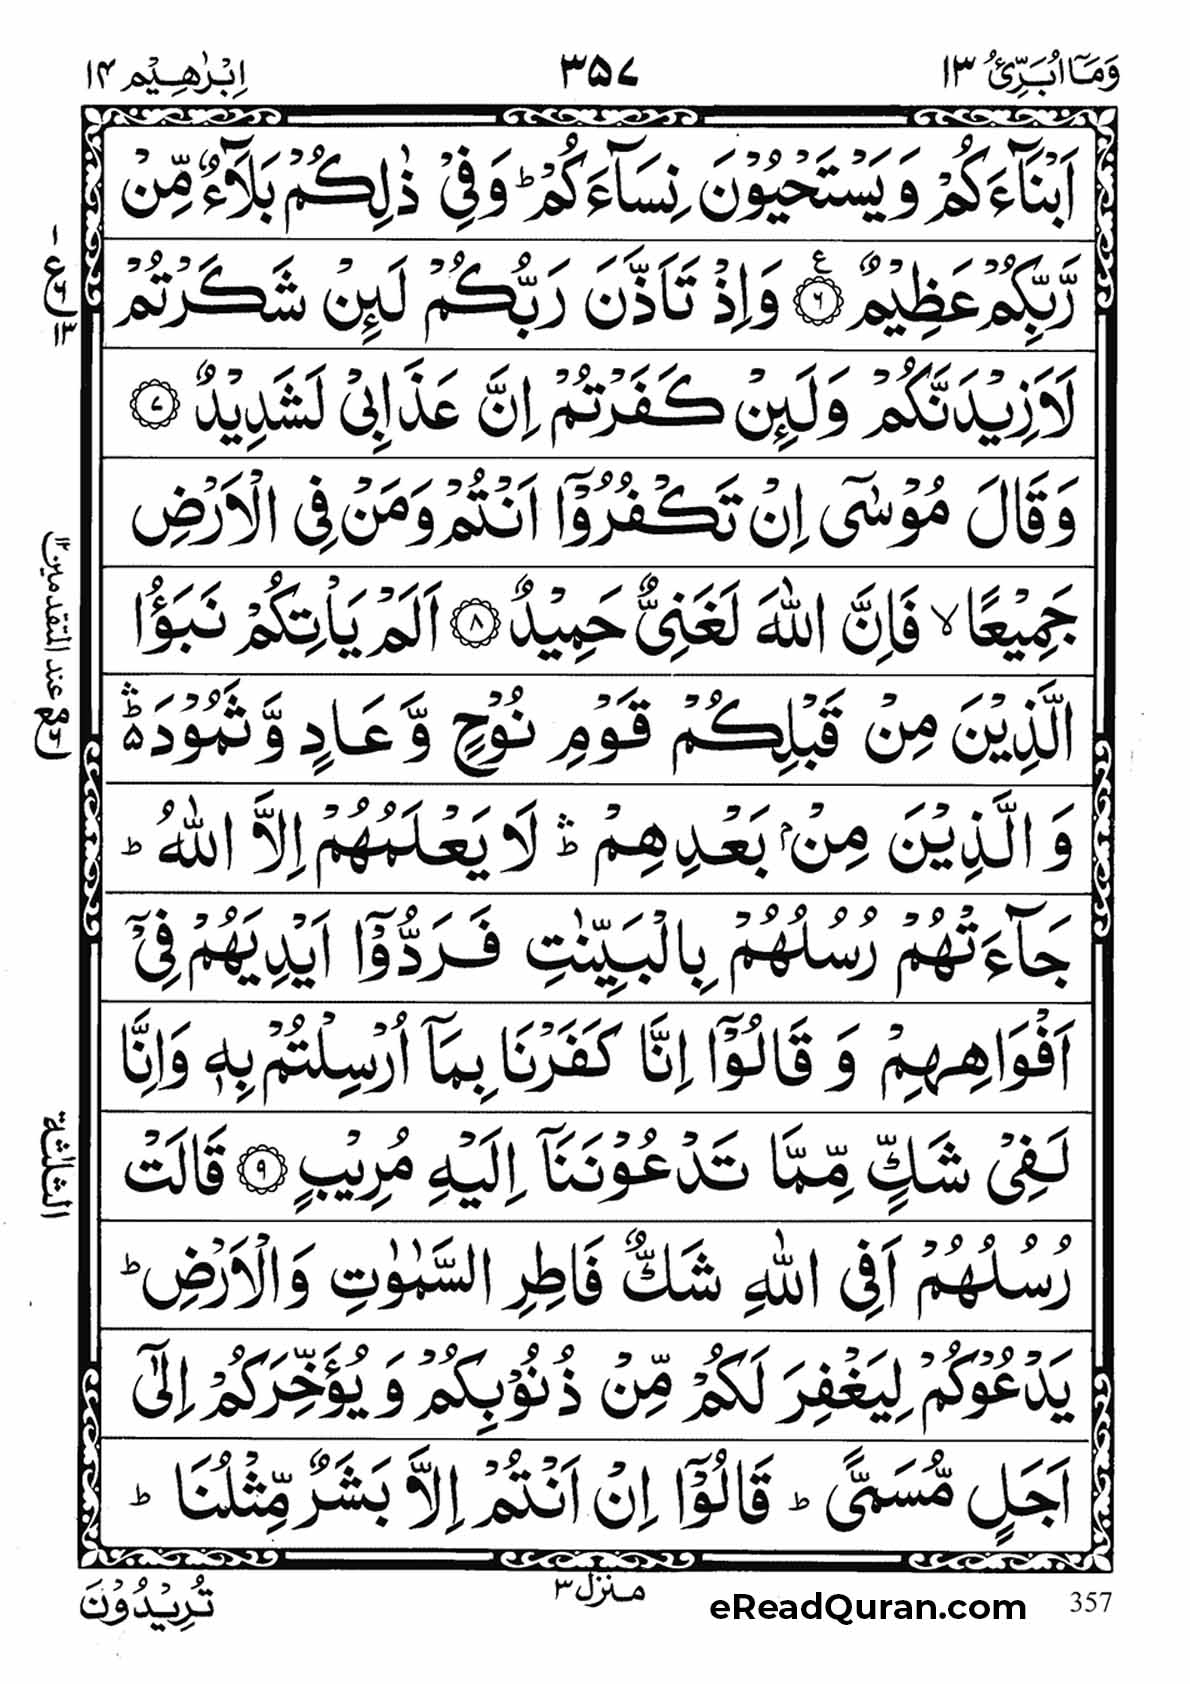 وَمَآ اُبَرِّئُ ١٣
٣٥٧
اِبْرٰهِيْم ١٤
اَبْنَآءَكُمْ وَيَسْتَحْيُوْنَ نِسَآءَكُمْ ؕ وَفِيْ ذٰلِكُمْ بَلَآءٌ مِّنْ
رَّبِّكُمْ عَظِيْمٌ ۟ ﴿٦﴾ وَاِذْ تَاَذَّنَ رَبُّكُمْ لَئِنْ شَكَرْتُمْ
لَاَزِيْدَنَّكُمْ وَلَئِنْ كَفَرْتُمْ اِنَّ عَذَابِيْ لَشَدِيْدٌ ﴿٧﴾
وَقَالَ مُوْسٰٓى اِنْ تَكْفُرُوْٓا اَنْتُمْ وَمَنْ فِي الْاَرْضِ
جَمِيْعًا ۙ فَاِنَّ اللّٰهَ لَغَنِيٌّ حَمِيْدٌ ﴿٨﴾ اَلَمْ يَاْتِكُمْ نَبَؤُا
الَّذِيْنَ مِنْ قَبْلِكُمْ قَوْمِ نُوْحٍ وَّعَادٍ وَّثَمُوْدَ ۛؕ
وَالَّذِيْنَ مِنْۢ بَعْدِهِمْ ۛؕ لَا يَعْلَمُهُمْ اِلَّا اللّٰهُ ؕ
جَآءَتْهُمْ رُسُلُهُمْ بِالْبَيِّنٰتِ فَرَدُّوْٓا اَيْدِيَهُمْ فِيْٓ
اَفْوَاهِهِمْ وَقَالُوْٓا اِنَّا كَفَرْنَا بِمَآ اُرْسِلْتُمْ بِهٖ وَاِنَّا
لَفِيْ شَكٍّ مِّمَّا تَدْعُوْنَنَآ اِلَيْهِ مُرِيْبٍ ﴿٩﴾ قَالَتْ
رُسُلُهُمْ اَفِي اللّٰهِ شَكٌّ فَاطِرِ السَّمٰوٰتِ وَالْاَرْضِ ؕ
يَدْعُوْكُمْ لِيَغْفِرَ لَكُمْ مِّنْ ذُنُوْبِكُمْ وَيُؤَخِّرَكُمْ اِلٰٓى
اَجَلٍ مُّسَمًّى ؕ قَالُوْٓا اِنْ اَنْتُمْ اِلَّا بَشَرٌ مِّثْلُنَا ؕ
معند المتقدمين ١٢
الثلثة
تُرِيْدُوْنَ
منزل ٣
eReadQuran.com
357